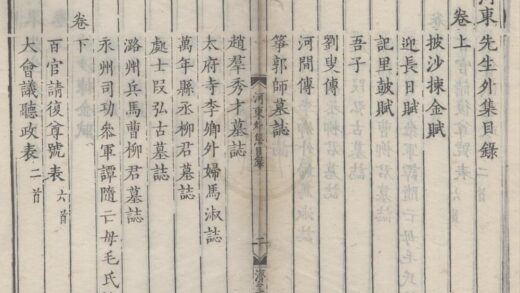 河東先生外集目錄
卷上
披沙揀金賦
迎長日賦
記里皷賦
吾子
劉叟傳
河間傳
箏郭師墓誌
河東外集目錄
二
趙羣秀才墓誌
太府寺李卿外婦馬淑誌
萬年縣丞柳君墓誌
處士段弘古墓誌
潞州兵馬曹柳君墓誌
永州司功參軍譚隨亡母毛氏誌
卷下
百官請復尊號表 六首
大會議聽政表 二首